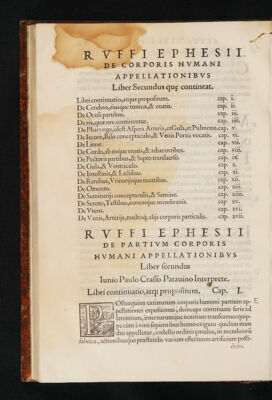 RVFFI EPHESII
DE CORPORIS HVMANI
APPELLATIONIBVS
Liber Secundus quę contineat.
Libri continuatio, atque propositum. cap. I.
De Cerebro, eiusque tunicis, & enatis. cap. ii.
De Oculi partibus. cap. iii.
De iis, quæ ore continentur. cap. iiii.
De Pharynge, idest Aspera Arteria, & Gula, et Pulmone. cap. v.
De Iecore, fellis conceptaculo, & Venis Portis vocatis. cap. vi.
De Liene. cap. vii.
De Corde, ab eoque enatis, & adiacentibus. cap. viii.
De Pectoris partibus, & Septo transuerso. cap. ix.
De Gula, & Ventriculo. cap. x.
De Intestinis, & Lactibus. cap. xi.
De Renibus, Vrinarijsque meatibus. cap. xii.
De Omento. cap. xiii.
De Seminarijs conceptaculis, & Semine. cap. xiiii.
De Scroto, Testibus, eorumque membranis. cap. xv.
De Vtero. cap. xvi.
De Venis, Arterijs, multisq; alijs corporis particulis. cap. xvii.
RVFFI EPHESII
DE PARTIVM CORPORIS
HVMANI APPELLATIONIBVS
Liber secundus
Iunio Paulo Crasso Patauino Interprete.
Libri continuatio, atq; propositum. Cap. I.
Postquam extimarum corporis humani partium ap
pellationes exposuimus, deinceps continuata serie ad
internarumque notionem transeamus: quip
homo exiguus quidam mun
dus appelletur, cælestis ordinis æmulus, in membrorū
fabrica, actionibusque præstandis varium effectuum artificium